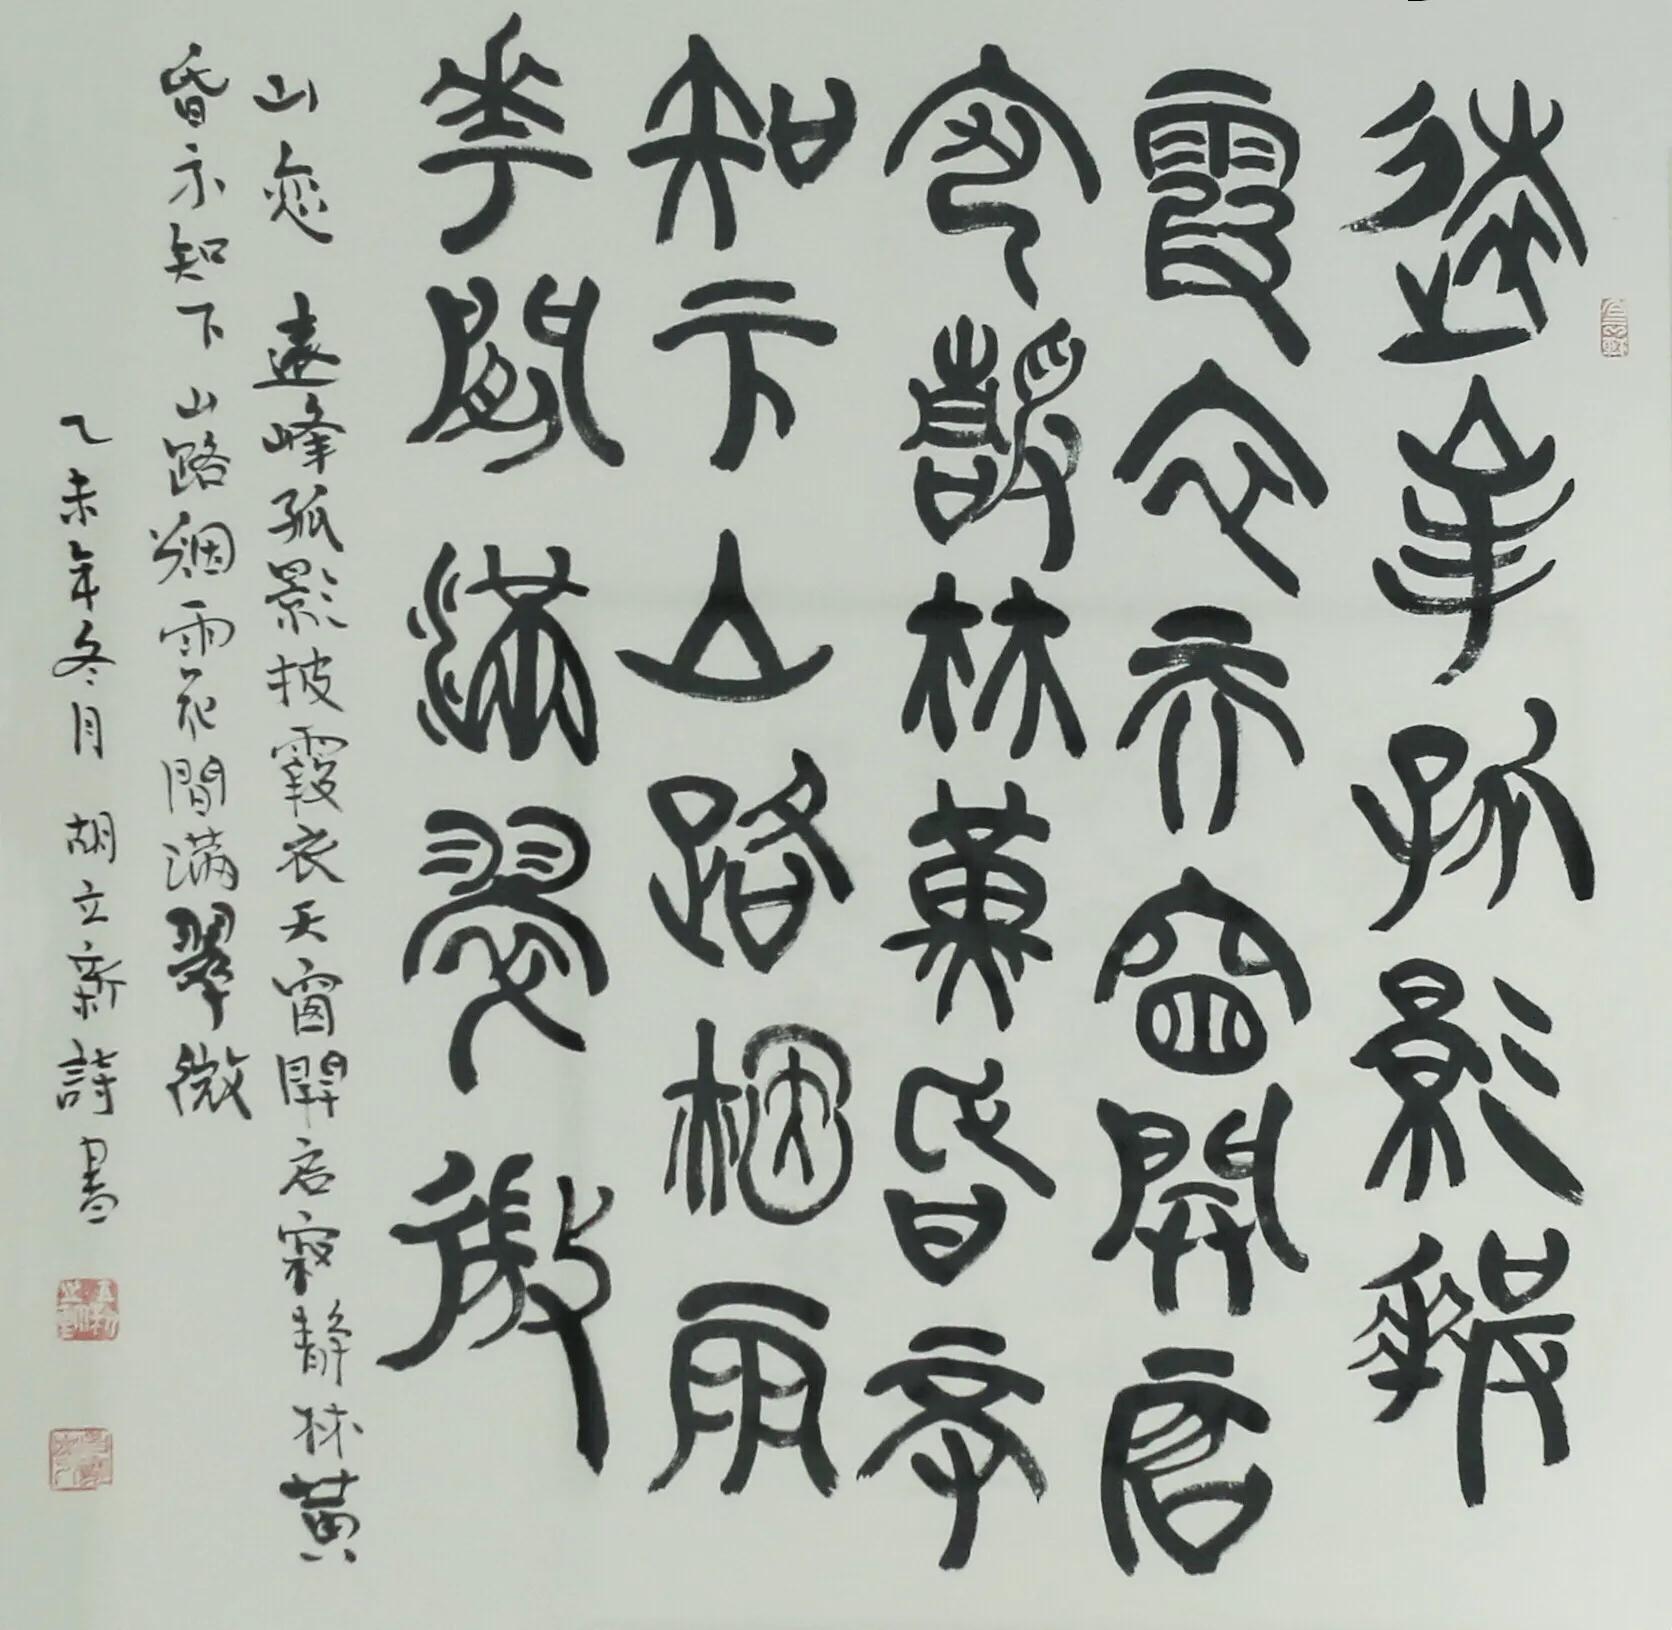 遠峰孤影披
霞衣天窗開启
寂靜林黄昏示
知下山路烟雨
花間滿翠微
山恋 遠峰孤影披霞衣天窗開启寂靜林黄
昏示知下山路烟雨花間满翠微
乙未年冬月 胡立新詩書